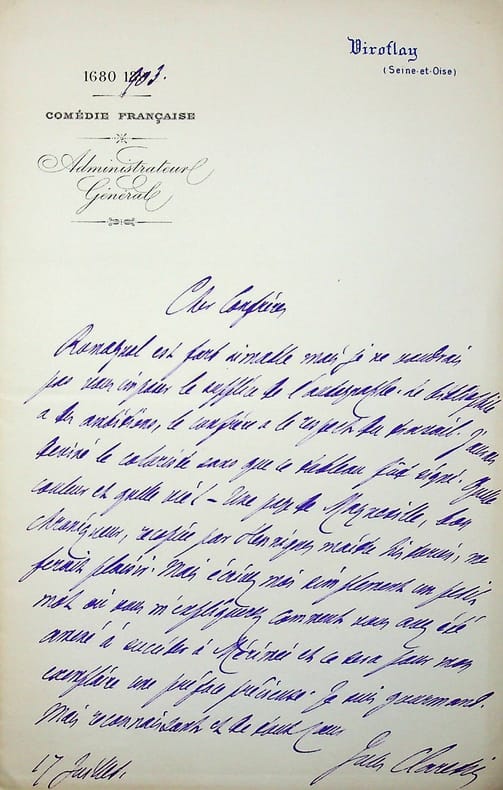 Viroflay
(Seine-et-Oise)
1680 1903.
COMÉDIE FRANÇAISE
Administrateur
Général
Cher Confrère
Romagnol est fort aimable mais je ne voudrais
pas vous imposer le supplice de l'autographe. Le bibliophile
a des ambitions, le confrère a le respect du travail. J'aurais
deviné le coloriste sans que le tableau fût signé. Quelle
couleur et quelle vie! - Une page de Mergeville, bon
chroniqueur, par maître me
ferait plaisir. Mais écrivez moi simplement un petit
mot où vous m'expliquerez comment vous avez été
amené à succéder à Mérimée et ce sera pour mon
exemplaire une préface précieuse. Je suis gourmand.
Mais reconnaissant et de tout cœur
Jules Claretie
17 Juillet.